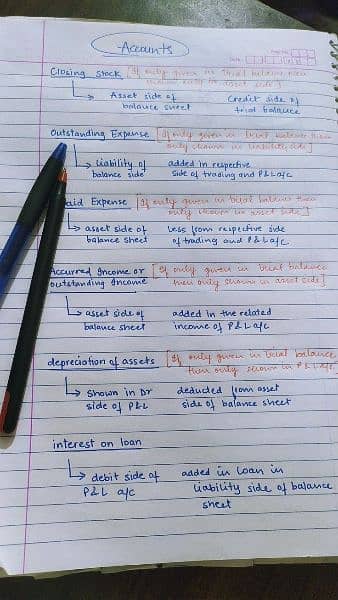 Accounts
closing stock [If only given in trial balance then
only shown in asset side]
Asset side of credit side of
balance sheet trial balance
outstanding Expense [If only given in trial balance then
only shown in liability side]
Liability of added in respective
balance side side of trading and P&L a/c
aid Expense [If only given in trial balance then
only shown in asset side]
asset side of Less from respective side
balance sheet of trading and P&L a/c
Accurred Income or [If only given in trial balance
outstanding Income then only shown in asset side]
asset side of added in the related
balance sheet income of P&L a/c
depreciation of assets [If only given in trial balance
then only shown in P&L a/c]
shown in Dr deducted from asset
side of P&L side of balance sheet
interest on loan
debit side of added in Loan in
P&L a/c liability side of balance
sheet